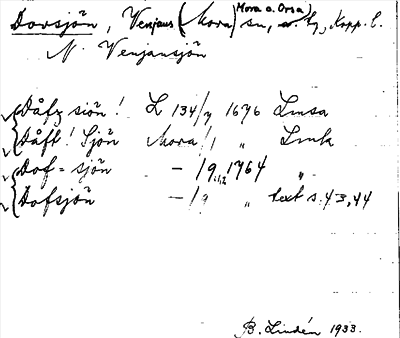 Dovsjön, Venjans (Mora) sn, Mora o. Orsa), Kopp. l.
N. Venjansjön
Dåfz siön! L 134/7 1676 Lmsa
Dåft! Sjön Mora 1/1 " Lmk
Dof = sjön - /9 1764 "
Dofsjön - /9 " text s. 43, 44
B. Lindén 1933.